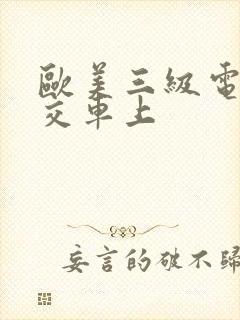 歐美三級電
交車上
妄言的破不歸